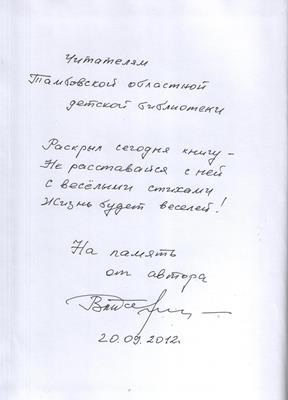 Читателям
Тамбовской областной
детской библиотеки
Раскрыл сегодня книгу –
Не расставайся с ней
С весёлыми стихами
Жизнь будет веселей!
На память
от автора
20.09.2012г.